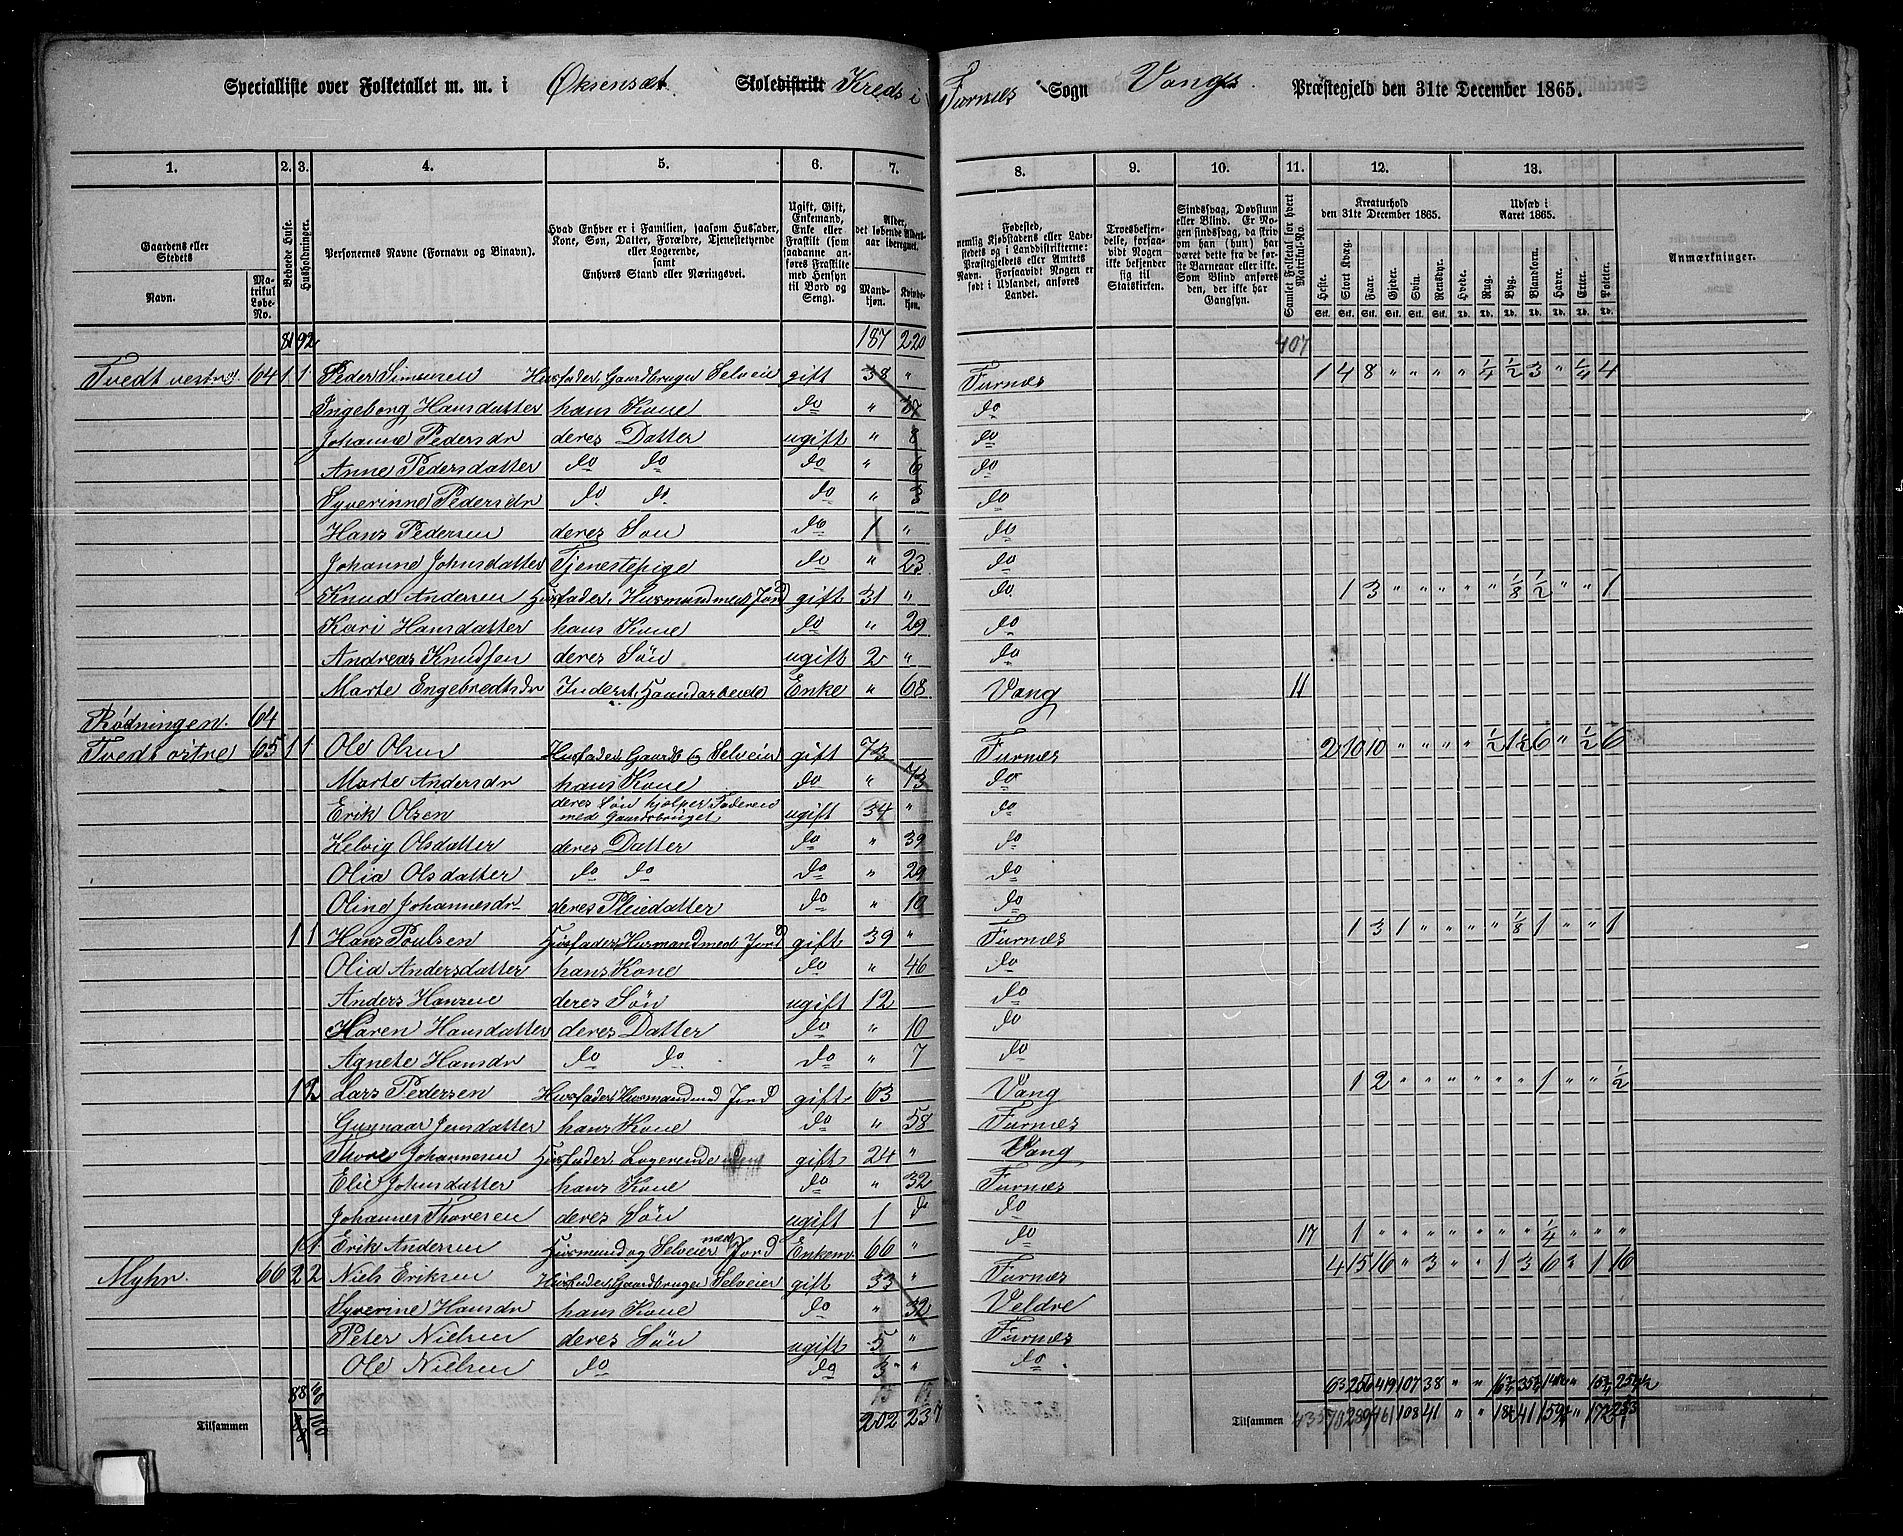 Specialliste over Folketallet m. m. i Øksensæt Skoledistrikt Kreds i Furnæs Sogn Vangs Præstegjeld den 31te December 1865.
1. 2. 3. 4. 5. 6. 7. 8. 9. 10. 11. 12. 13.
Gaardens eller Stedets Navn. Matrikul Løbe-No. Beboede Huse. Husholdninger. Personernes Navne (Fornavn og Binavn). Hvad Enhver er i Familien, saasom Husfader, Kone, Søn, Datter, Forældre, Tjenestetyende eller Logerende, samt Enhvers Stand eller Næringsvei. Ugift, Gift, Enkemand, Enke eller Fraskilt (som saadanne anføres Fraskilte med Hensyn til Bord og Seng). Alder, det løbende Aldersaar iberegnet. Mandkjøn. Kvindekjøn. Fødested, nemlig Kjøbstadens eller Ladestedets og i Landdistrikterne: Præstegjeldets eller Amtets Navn. Forsaavidt Nogen er født i Udlandet, anføres Landet. Troesbekjendelse, forsaavidt Nogen ikke bekjender sig til Statskirken. Sindssvag, Døvstum eller Blind. Er Nogen sindssvag, da skriv om han (hun) har været dette fra de første Barneaar eller ikke. Som Blind anføres den, der ikke har Gangsyn. Samlet Folketal for hvert Matrikul-No. Kreaturhold den 31te December 1865. Heste. Stort Kvæg. Faar. Gjeder. Svin. Rensdyr. Udsæd i Aaret 1865. Hvede. Rug. Byg. Blandkorn. Havre. Erter. Poteter. Anmærkninger.
81 92 187 220 407
Tvedt vestre 64 1 1 Peder Simensen Husfader Gaardbruger Selveier gift 38 " Furnæs 1 4 8 " " " " 1/4 1/2 3 " 1/4 4
Ingeborg Hansdatter hans Kone do " 37 do
Johanne Pedersdr deres Datter ugift " 8 do
Anne Pedersdatter do do do " 6 do
Syverinne Pedersdr do do do " 3 do
Hans Pedersen deres Søn do 1 " do
Johanne Johnsdatter Tjenestepige do " 23 do
Knud Andersen Husfader, Husmand med Jord gift 31 " do 1 3 " " " " " 1/8 1/2 " " 1
Kari Hansdatter hans Kone do " 29 do
Andreas Knudsen deres Søn ugift 2 " do
Marte Engebredtsdr Inderst, Haandarbeide Enke " 68 Vang 11
Rødningen 64
Tvedt østre 65 1 1 Ole Olsen Husfader Gaardb og Selveier gift 73 Furnæs 2 10 10 " " " " 1/2 1 1/2 6 " 1/2 6
Marte Andersdr hans Kone do " 73 do
Erik Olsen deres Søn hjelper Faderen med Gaardsbruget ugift 34 " do
Helvig Olsdatter deres Datter do " 39 do
Olia Olsdatter do do do " 29 do
Oline Johannesdr deres Pleiedatter do " 10 do
1 1 Hans Poulsen Husfader Husmand med Jord gift 39 " Furnæs 1 3 1 " " " " 1/8 1 " " 1
Olia Andersdatter hans Kone do " 46 do
Anders Hansen deres Søn ugift 12 do
Karen Hansdatter deres Datter do " 10 do
Agnete Hansdr do do do " 7 do
1 2 Lars Pedersen Husfader Husmand med Jord gift 63 Vang 1 2 " " " " " " 1 " " 1/2
Gunnaar Jensdatter hans Kone do " 58 Furnæs
Thore Johannesen Husfader, Logerende gift 24 " Vang
Elie Johnsdatter hans Kone do " 32 Furnæs
Johannes Thoresen deres Søn ugift 1 do do
1 1 Erik Andersen Husmand og Selveier med Jord Enkem. 66 " do 17 1 " " " " " " " 1/4 " " "
Myhr. 66 2 2 Niels Eriksen Husfader Gaardbruger Selveier gift 33 " Furnæs 4 15 16 " 3 " " 1 3 6 3 1 16
Syverine Hansdr hans Kone do " 32 Veldre
Peter Nielsen deres Søn ugift 5 " Furnæs
Ole Nielsen do do 3 " do
15 17 63 256 419 107 38 " "
Tilsammen 202 237 Tilsammen 461 108 41 " "